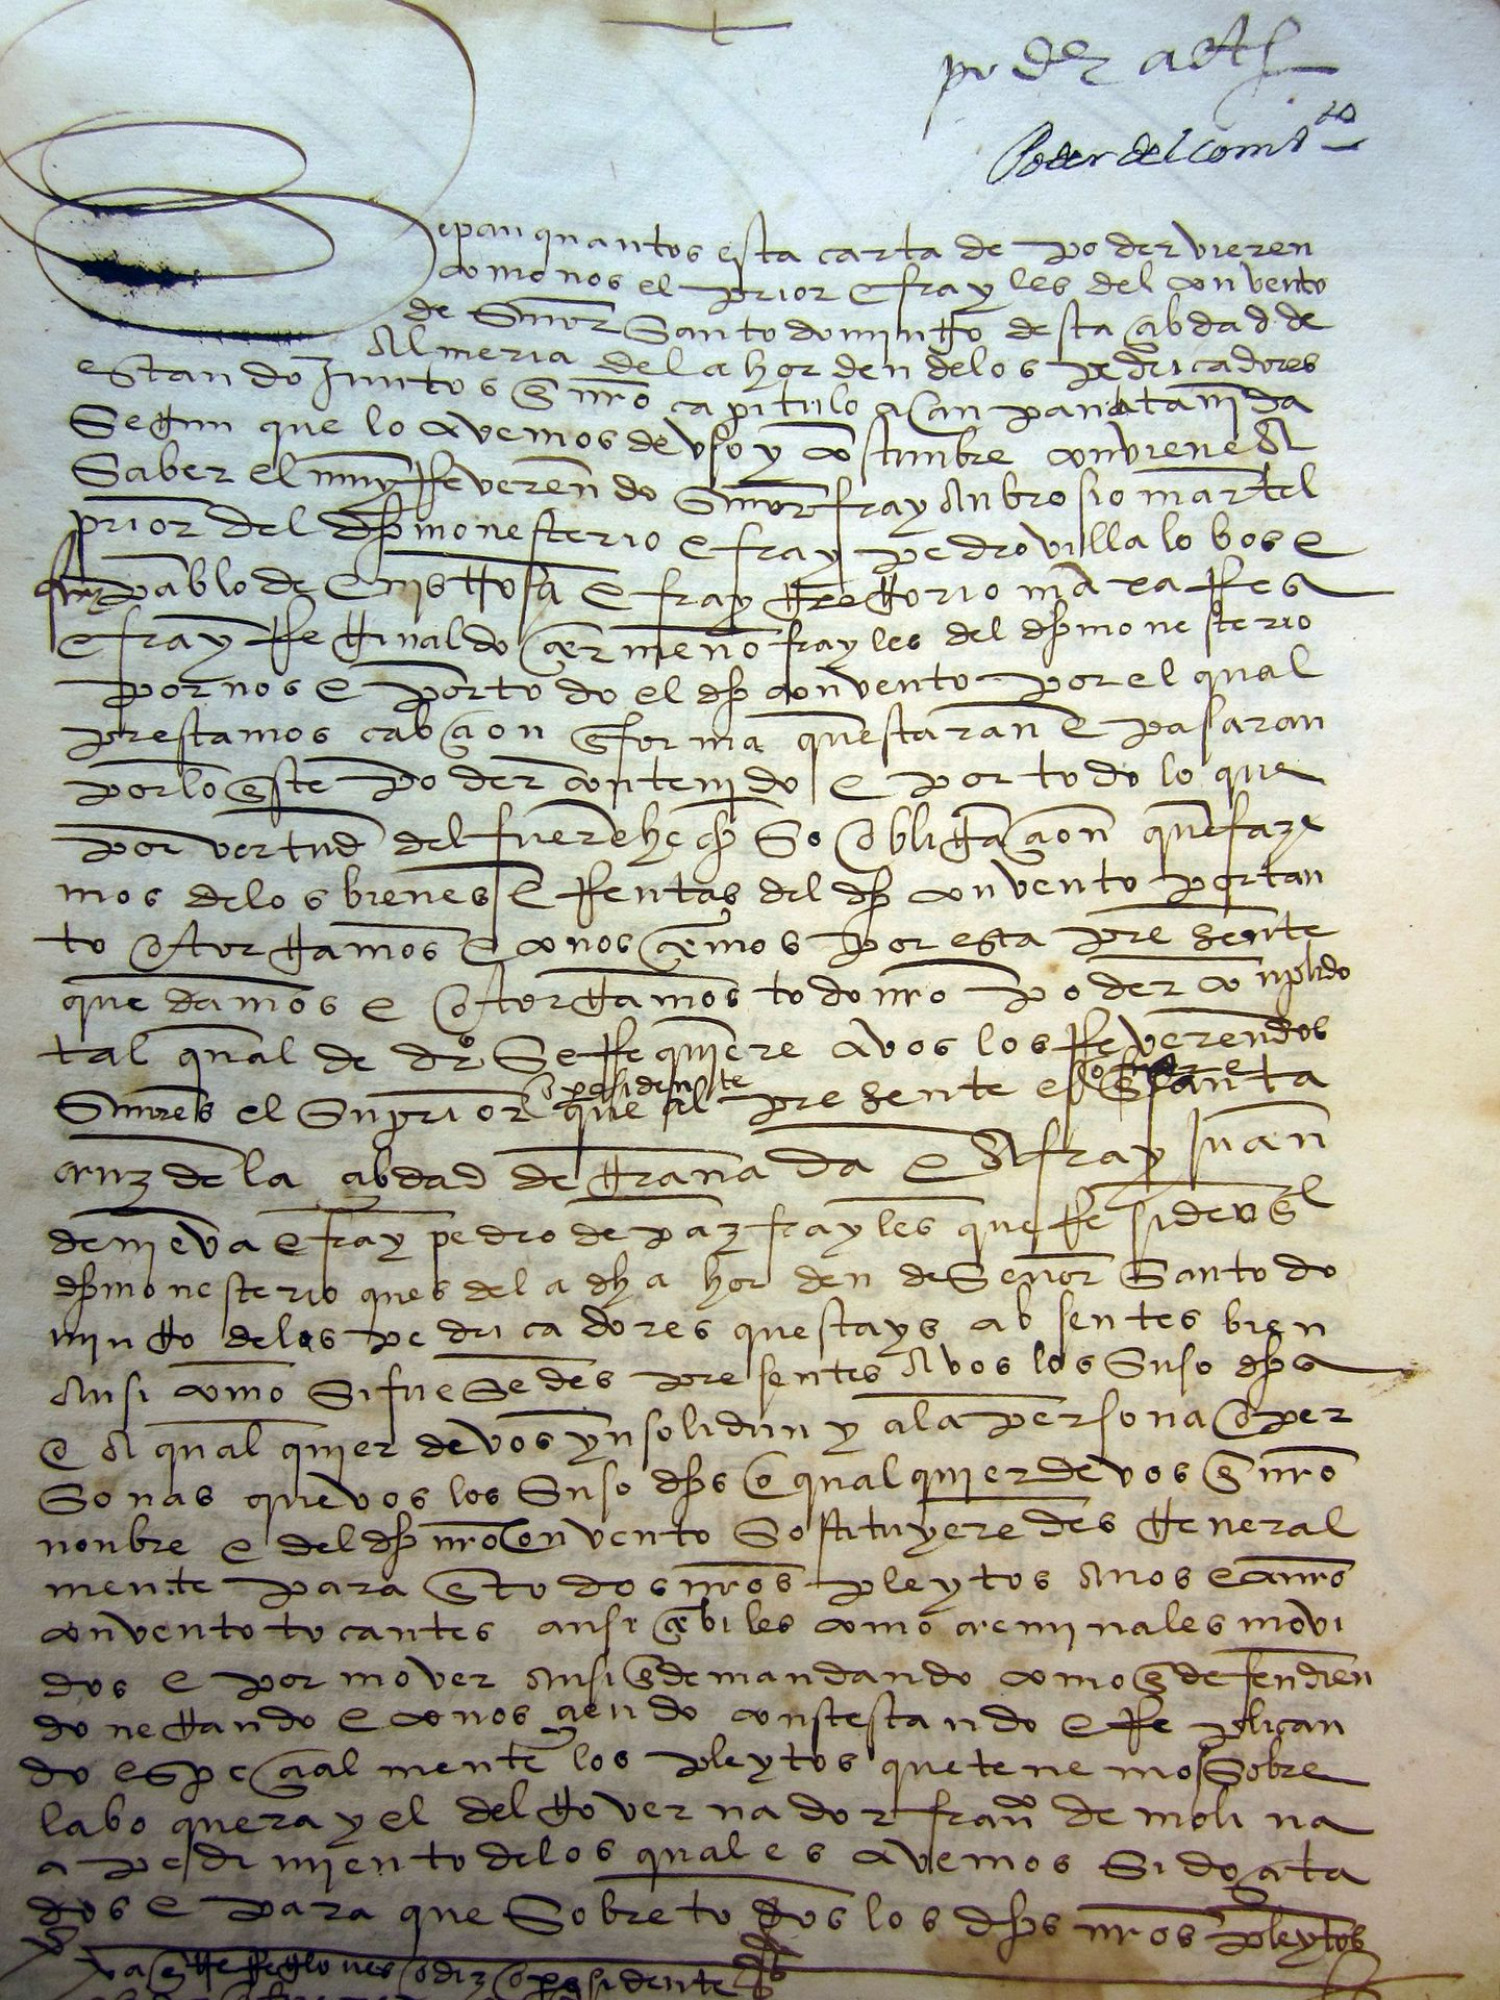 poder
Poder del comto
Sepan quantos esta carta de poder vieren
como nos el prior e frayles del convento
de Señor Santo domingo desta çibdad de
Almeria de la horden de los pedricadores
estando Juntos en nro capitulo a canpana tañida
Segun que lo avemos de uso y costunbre conviene A
Saber el muy Reverendo Señor fray Anbrosio martel
prior del dho monesterio e fray pedro villalobos e
fray pablo de e fray gregorio
e fray Reginaldo frayles del dho monesterio
por nos e por todo el dho convento por el qual
prestamos cabçion en forma questaran e pasaran
por lo en este poder contenido e por todo lo que
por vertud del fuere hecho So obligaçion que faze
mos de los bienes e Rentas del dho convento por tan
to otorgamos e conosçemos por esta presente
que damos e otorgamos todo nro poder conplido
tal qual de dro Se Requiere a vos los Reverendos
Señores el Suprior o presidente que al presente es en Santa
cruz de la çibdad de granada e A fray Juan
de nieva e fray pedro de paz frayles que Residen en el
dho monesterio ques de la dha horden de Señor Santo do
mingo de los pedricadores questays absentes bien
Ansi como Si fuesedes presentes A vos los Suso dhos
e A qual quier de vos ynsolidun y a la persona o per
Sonas que vos los Suso dhos o qual quier de vos en nro
nonbre e del dho nro convento Sostituyeredes General
mente para en todos nros pleytos A nos e a nro
convento tocantes ansi çebiles como creminales movi
dos e por mover Ansi en demandando como en defendien
do negando e conosçiendo constestando e Replican
do espeçialmente los pleytos que tenemos Sobre
la boquera y el del governador franco de molina
a pedimiento de los quales avemos Sido çita
dos e para que Sobre todos los dhos nros pleytos
va entre Reglones o diz o presidente